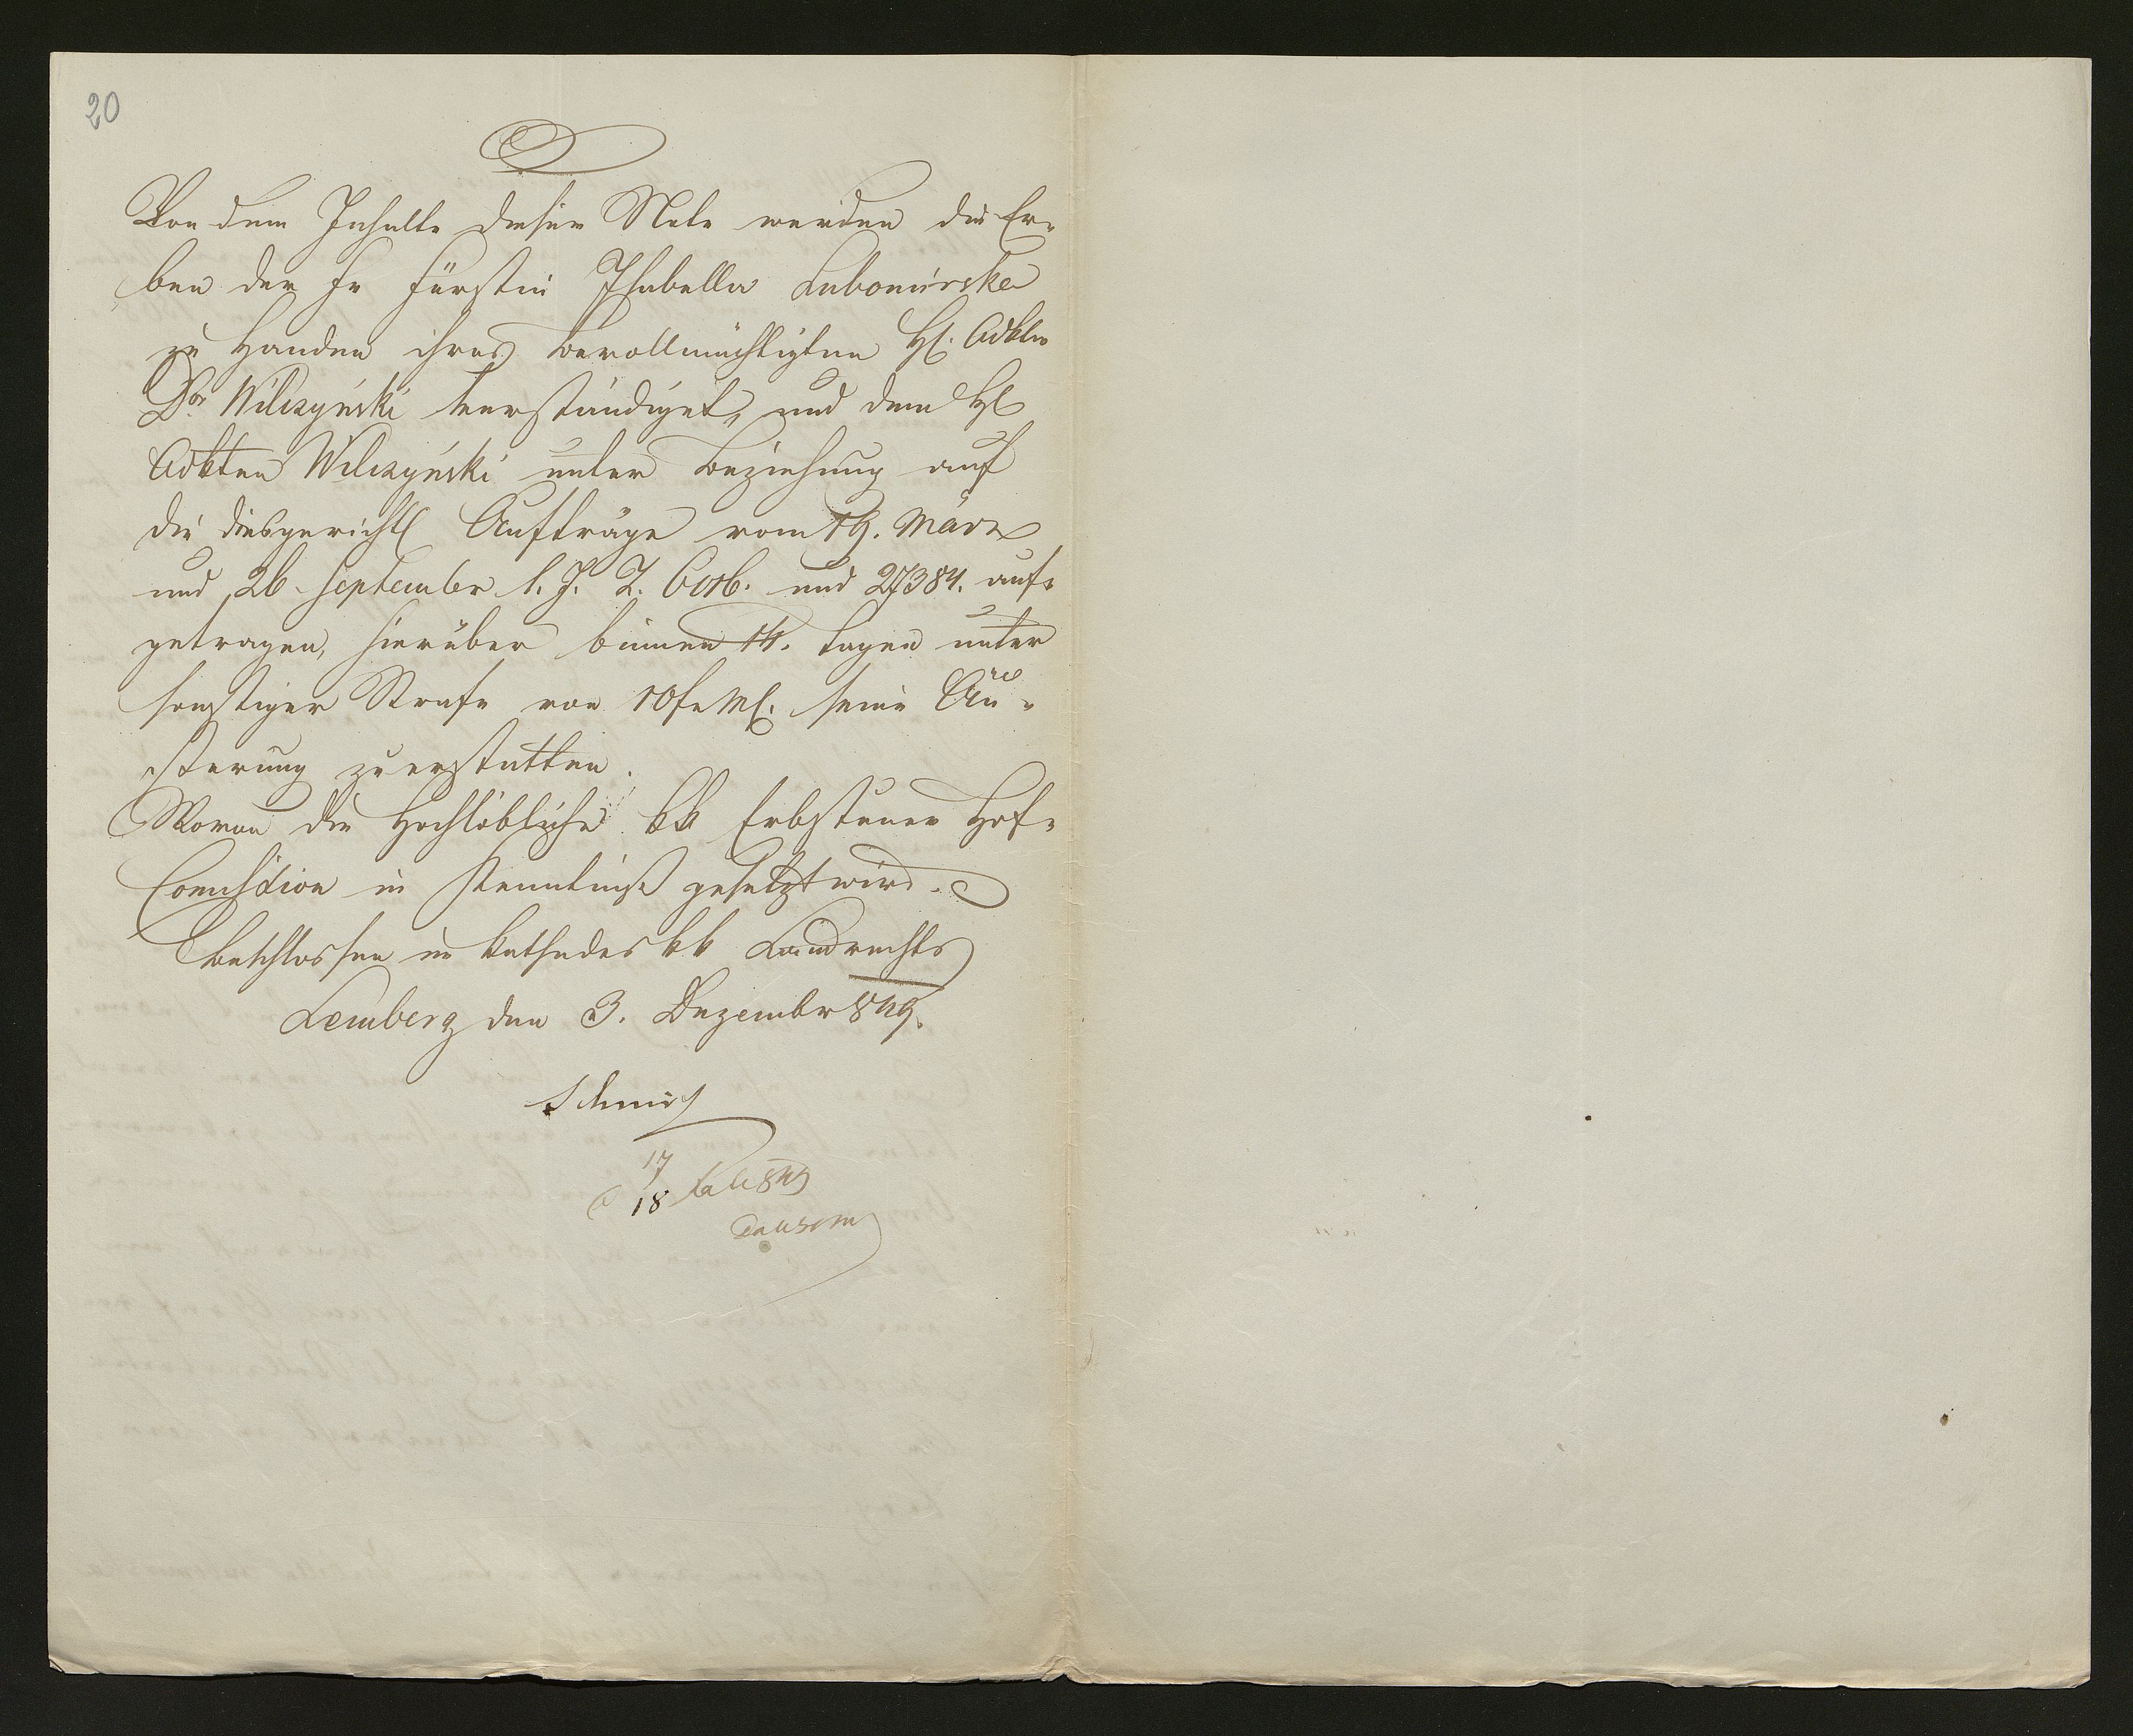 20
Von dem Inhalte dieser Note werden die Er-
ben der Fr Fürstin Isabella Lubomirska
zu Handen ihres bevollmächtigten H. Adktn
Dor Wilczyński verständiget, und dem H
Adkten Wilczyński unter Beziehung auf
die diesgerichtl Aufträge vom 19. März
und 26 September l. J. Z. und 27384. auf-
getragen, hierüber binnen 14. Tagen unter
sonstiger Strafe von 10 f CM. seine Äu-
ßerung zu erstatten.
Wovon die Hochlöbliche kk Erbsteuer Hof-
Comission in Kenntniß gesetzt wird.
Beschlossen im Rathe des kk Landrechts
Lemberg den 3. Dezember 849.
17
18